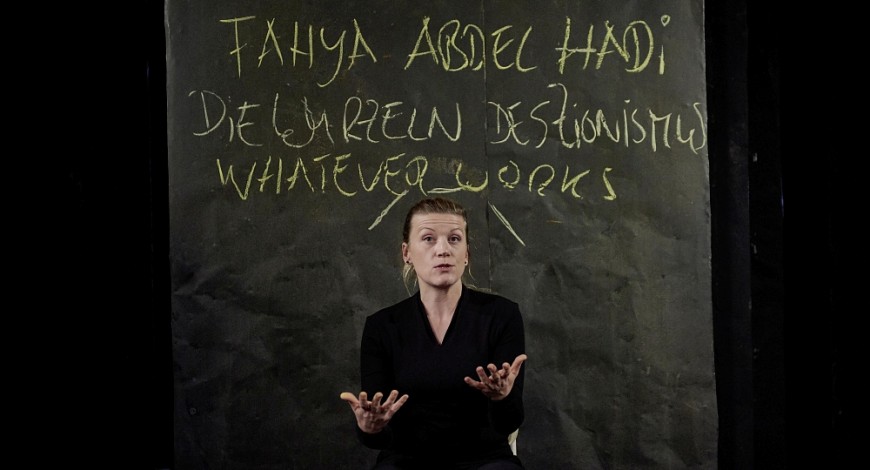 FAHYA ABDEL HADi
DiE WURZELN DES ZiONiSMUS
WHATEVER WORKS